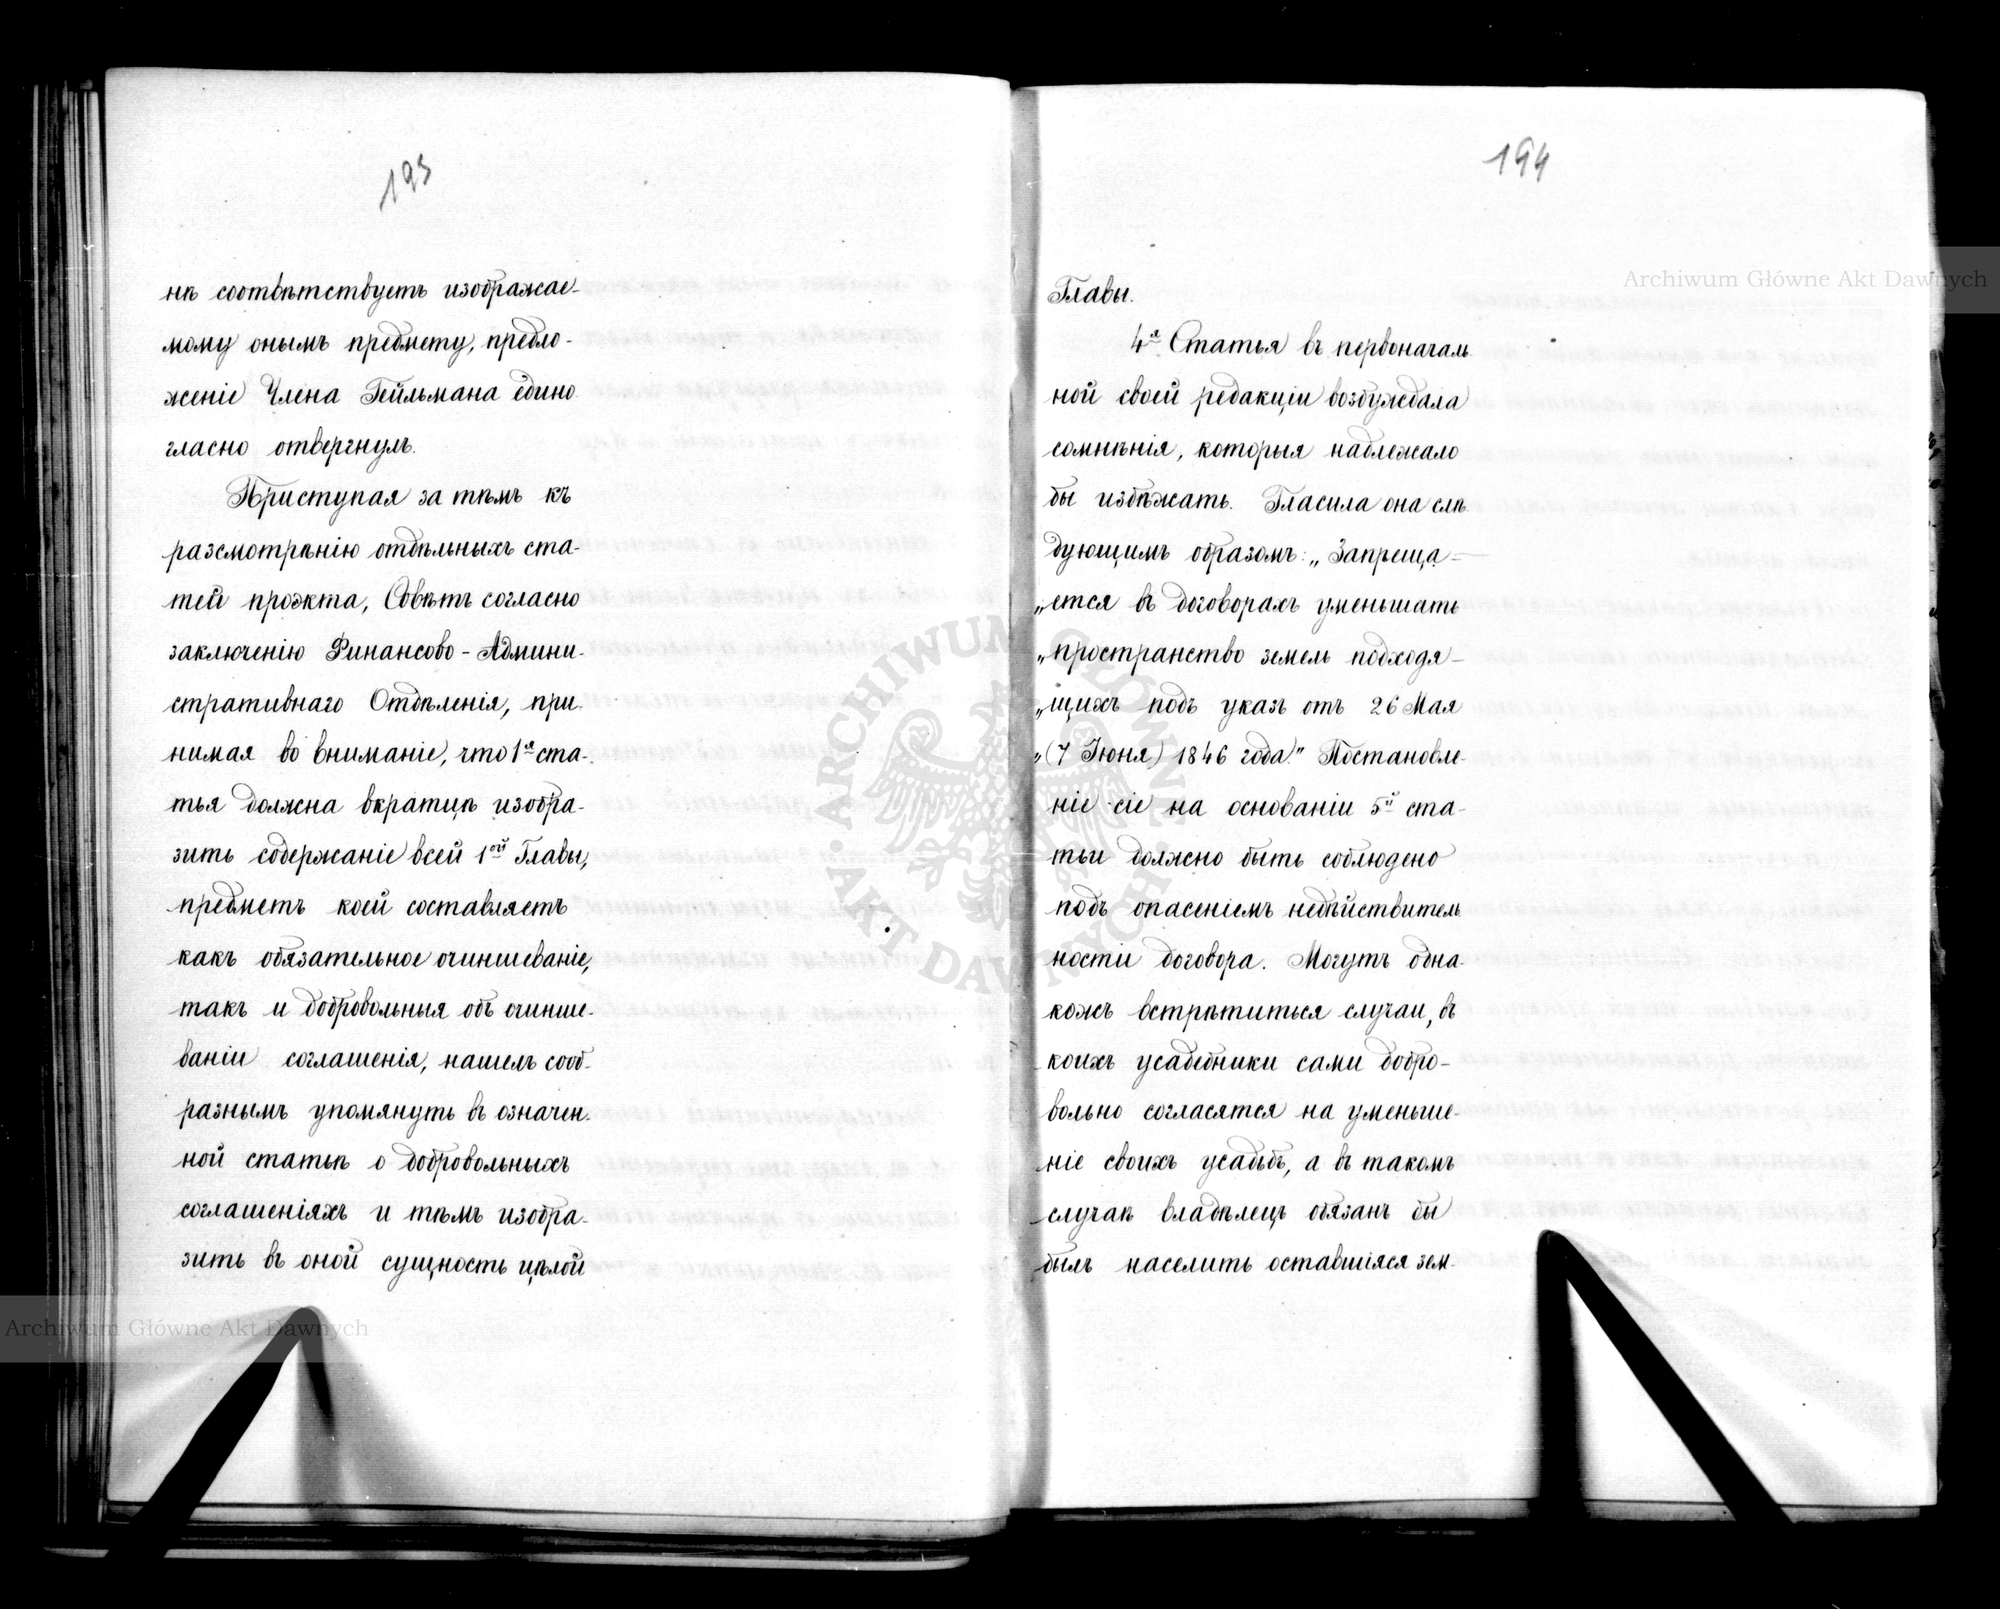 193
не соотвѣтствуетъ изображае-
мому онымъ предмету, предло-
женіе Члена Гейльмана едино
гласно отвергнулъ.
Приступая за тѣмъ къ
разсмотрѣнію отдѣльныхъ ста-
тей проэкта, Совѣтъ согласно
заключенію Финансово-Админи-
стративнаго Отдѣленія, при-
нимая во вниманіе, что 1я ста-
тья должна вкратцѣ изобра-
зить содержаніе всей 1ой Главы,
предметъ коей составляетъ
какъ обязательное очиншеваніе,
такъ и добровольныя объ очинше-
ваніи соглашенія, нашелъ сооб-
разнымъ упомянуть въ означен-
ной статьѣ о добровольныхъ
соглашеніяхъ и тѣмъ изобра-
зить въ оной сущность цѣлой
194
Главы.
4я Статья въ первоначаль
ной своей редакціи возбуждала
сомнѣнія, которыя надлежало
бы избѣжать. Гласила она слѣ
дующимъ образомъ: „Запреща-
„ется въ договорахъ уменьшать
„пространство земель подходя-
„щихъ подъ указъ отъ 26 Мая
„(7 Іюня) 1846 года." Постановле-
ніе сіе на основаніи 5й ста-
тьи должно быть соблюдено
подъ опасеніемъ недѣйствитель
ности договора. Могутъ одна-
кожъ встрѣтиться случаи, въ
коихъ усадебники сами добро-
вольно согласятся на уменьше-
ніе своихъ усадьбъ, а въ такомъ
случаѣ владѣлецъ обязанъ бы
былъ населить оставшіяся зем-
Archiwum Główne Akt Dawnych
Archiwum Główne Akt Dawnych
ARCHIWUM GŁÓWNE AKT DAWNYCH